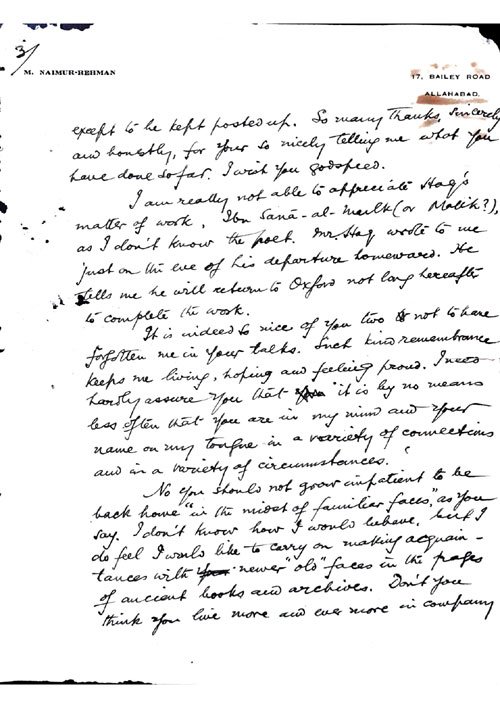 3/
M. NAIMUR-REHMAN
17, BAILEY ROAD
ALLAHABAD,
except to be kept posted up. So many thanks, sincerely
and honestly, for your so nicely telling me what you
have done so far. I wish you godspeed.
I am really not able to appreciate Haq's
matter of work, Ibn Sanā-al-Maulk (or Malik?),
as I don't know the poet. Mr. Haq wrote to me
just on the eve of his departure homeward. He
tells me he will return to Oxford not long hereafter
to complete the work.
It is indeed so nice of you two not to have
forgotten me in your talks. Such kind remembrance
keeps me living, hoping and feeling proud. I need
hardly assure you that it is by no means
less often that you are in my mind and your
name on my tongue in a variety of connections
and in a variety of circumstances.
No you should not grow impatient to be
back home "in the midst of familiar faces," as you
say. I don't know how I would behave, but I
do feel I would like to carry on making acquain-
tances with newer "old" faces in the pages
of ancient books and archives. Don't you
think you live more and ever more in company